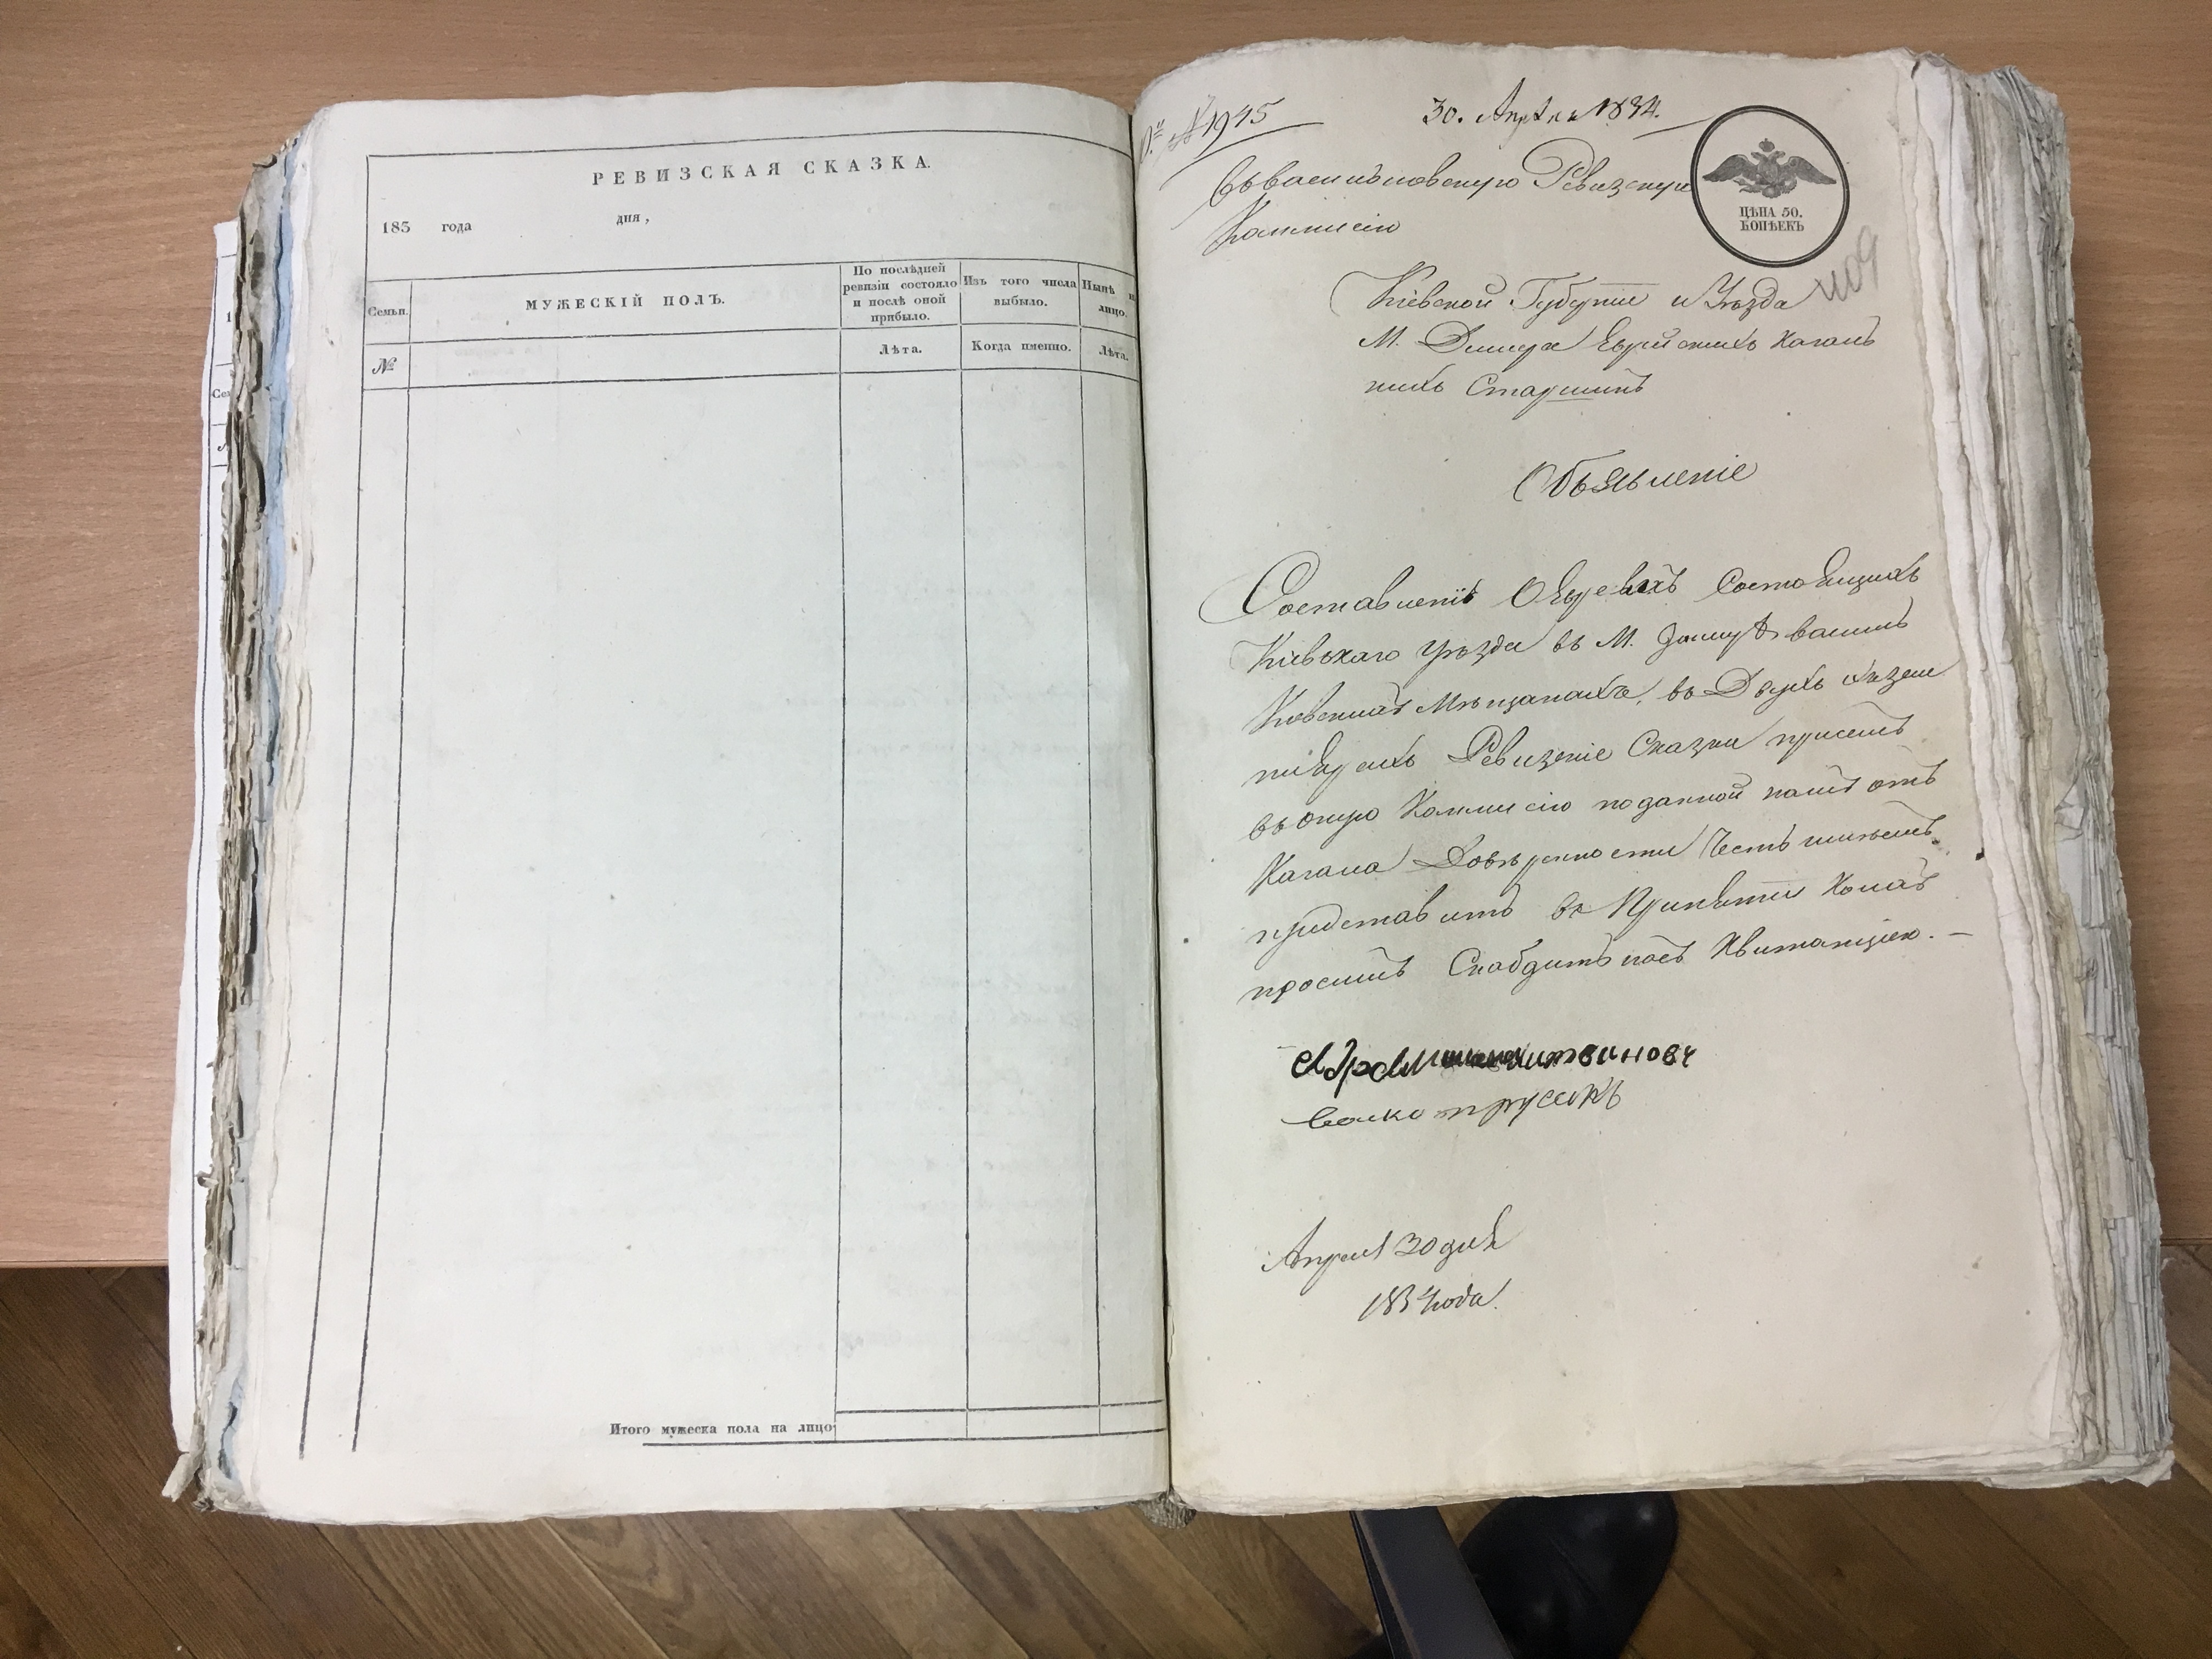 РЕВИЗСКАЯ СКАЗКА.
183 года дня,
Семьи.
МУЖЕСКІЙ ПОЛЪ.
По послѣдней
ревизіи состояло
и послѣ оной
прибыло.
Изъ того числа
выбыло.
Нынѣ
лицо.
№
Лѣта.
Когда именно.
Лѣта.
Итого мужеска пола на лицо
№ 1945
30. Апрѣля 1834.
Въ васильковскую Ревизскую
Коммисію
ЦѢНА 50.
КОПѢЕКЪ
409
Кіевской Губерніи и Уѣзда
М. Димера Еврейскихъ Кагаль
ныхъ Старшинъ
Объявленіе
Составленіѣ О Евреяхъ Состоящихъ
Кіевскаго уѣзда въ М.
Мѣщанахъ, въ Двухъ Экзем
плярахъ Ревизкіе Сказки присемъ
въ оную Коммисію поданной намъ отъ
Кагала Довѣренности Честь имѣемъ
представить въ Принятіи Коихъ
просимъ Снабдить насъ Квитанціею. —
Апреля 30 дня
1834 года.